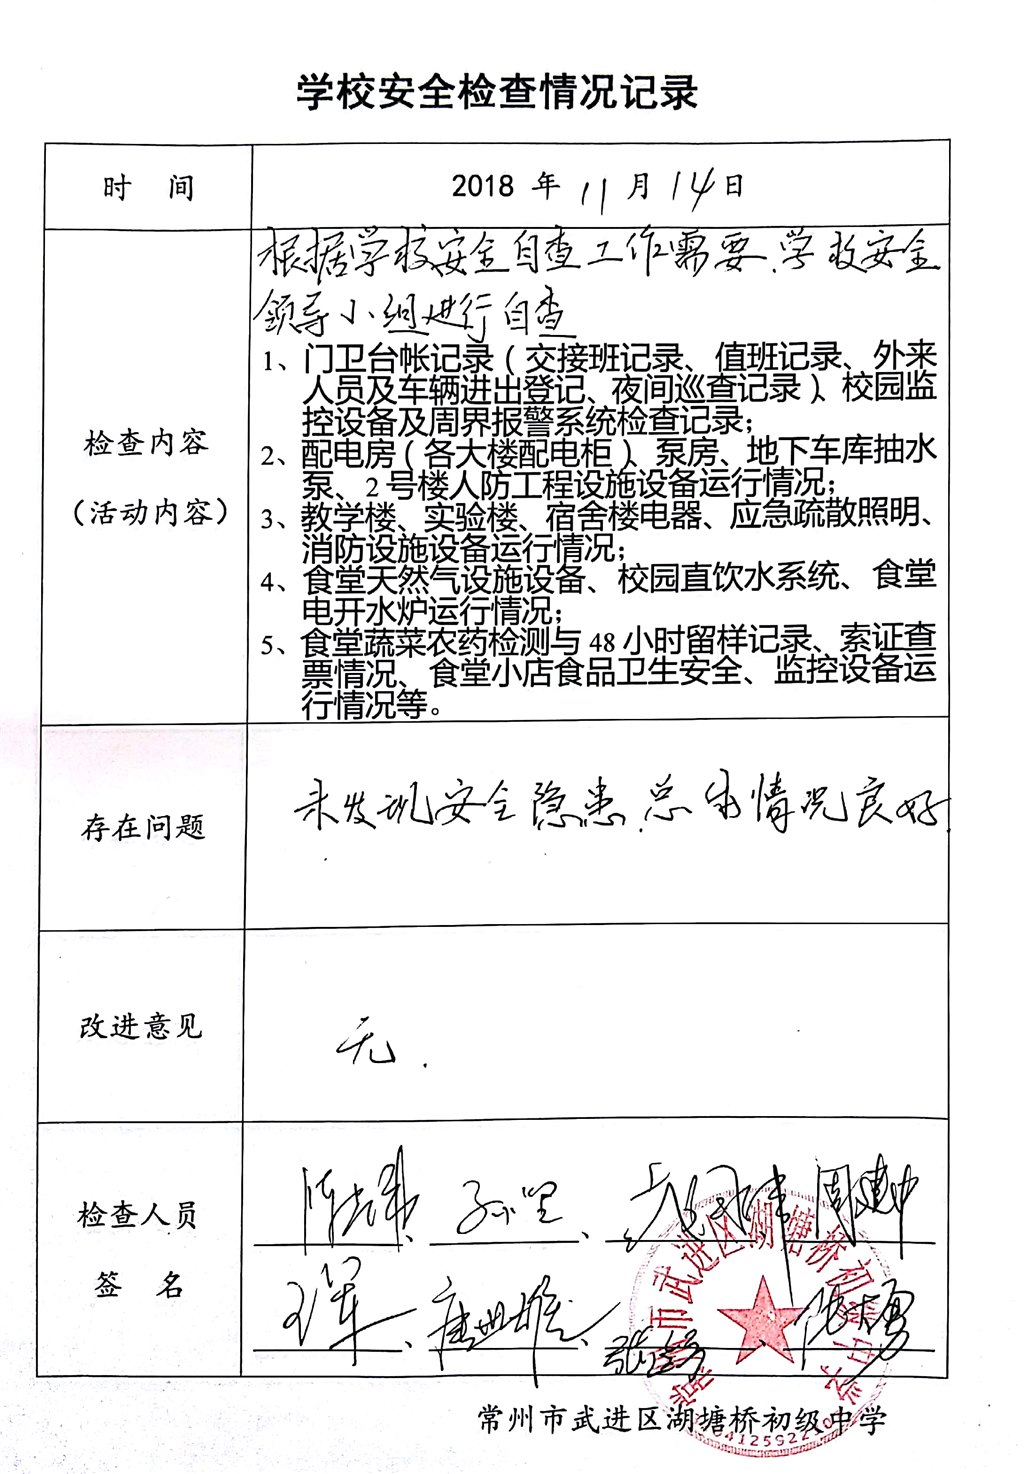 学校安全检查情况记录
时 间
2018 年 11 月 14 日
检查内容
（活动内容）
根据学校安全自查工作需要，学校安全
领导小组进行自查
1、门卫台帐记录（交接班记录、值班记录、外来
人员及车辆进出登记、夜间巡查记录）、校园监
控设备及周界报警系统检查记录；
2、配电房（各大楼配电柜）、泵房、地下车库抽水
泵、2 号楼人防工程设施设备运行情况；
3、教学楼、实验楼、宿舍楼电器、应急疏散照明、
消防设施设备运行情况；
4、食堂天然气设施设备、校园直饮水系统、食堂
电开水炉运行情况；
5、食堂蔬菜农药检测与 48 小时留样记录、索证查
票情况、食堂小店食品卫生安全、监控设备运
行情况等。
存在问题
未发现安全隐患，总体情况良好.
改进意见
无.
检查人员
签 名
孙坚、
周建中
王军、
常州市武进区湖塘桥初级中学
常州市武进区湖塘桥初级中学